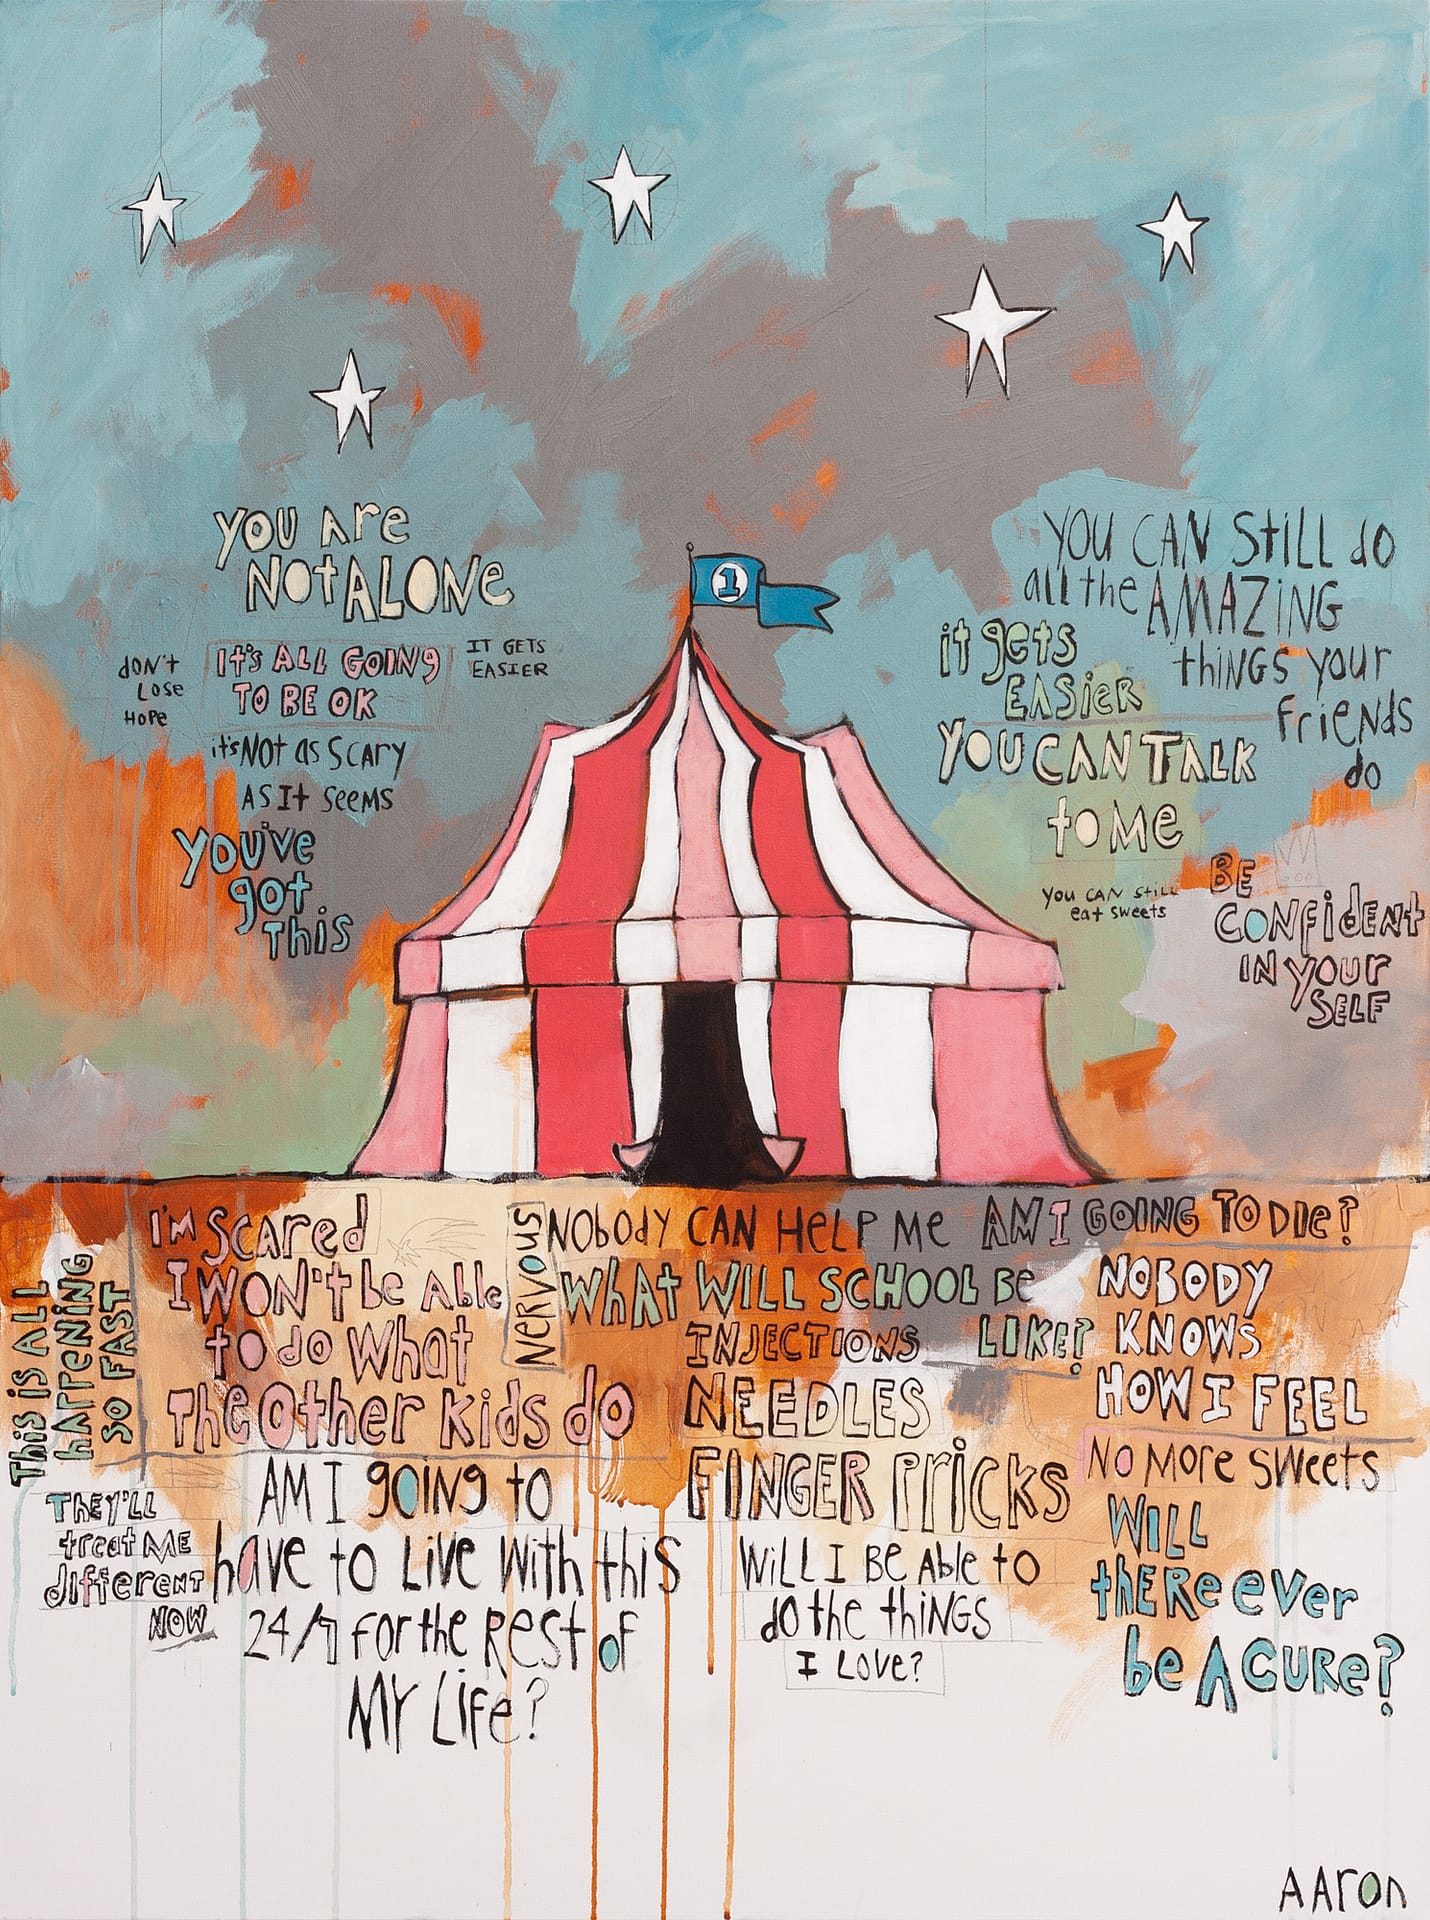 YOU ARE
NOT ALONE
DON'T
LOSE
HOPE
IT'S ALL GOING
TO BE OK
IT GETS
EASIER
it's NOT as SCARY
AS It SeeMS
YOU'VE
got
This
1
YOU CAN StiLL do
all the AMAZiNG
thiNGS your
friends
do
it gets
EASieR
YOU CAN TALK
to Me
YOU CAN STILL
eat sweets
BE
CONfideNt
IN YOUR
SELF
This is ALL
HAPPENiNG
SO FAST
I'M Scared
I WON't be Able
to do What
The Other kids do
NERVOUS
NObody CAN HeLP Me
AM I GOING TO DIe?
WhAt WILL SCHOOL BE
LIKE?
INJECTIONS
NEEDLES
FINGER PricKS
NOBODY
KNOWS
HOW I FEEL
NO MORE SWeets
THEY'LL
treat ME
differeNT
NOW
AM I gOiNg to
have to Live With this
24/7 for the Rest of
MY Life?
WiLL I Be AbLe to
do the thiNGS
I LOVe?
WiLL
thERe eVer
be A CURe?
AAron